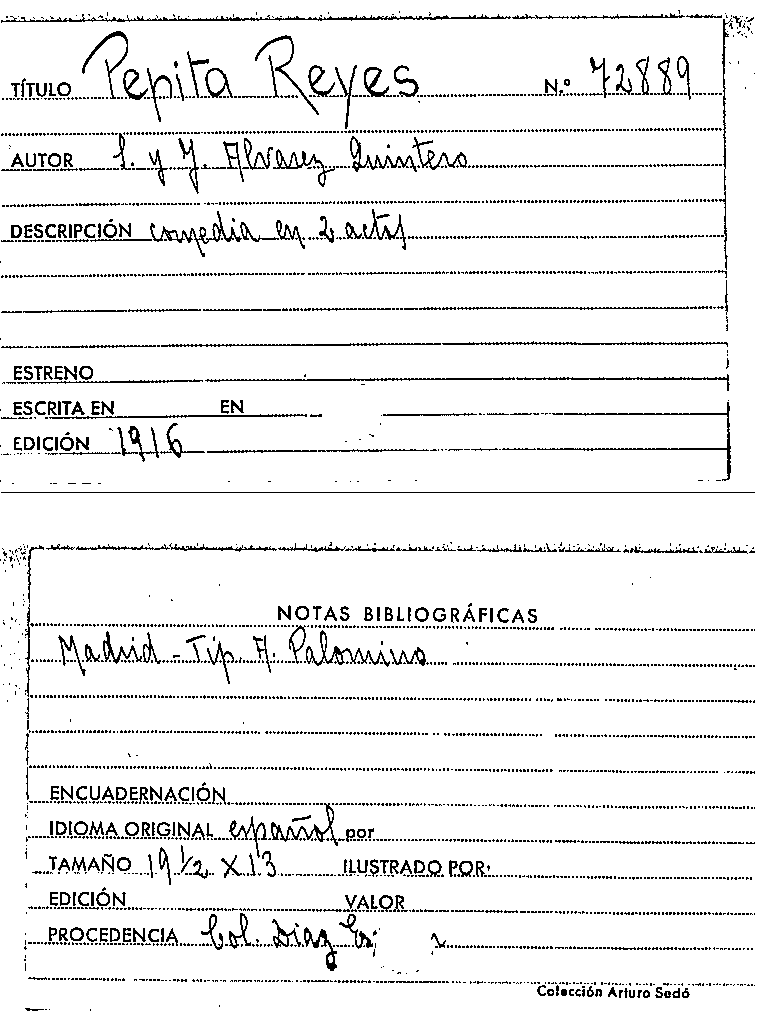 TÍTULO Pepita Reyes N.º 72889
AUTOR S. y J. Alvarez Quintero
DESCRIPCIÓN comedia en 2 actos
ESTRENO
ESCRITA EN EN
EDICIÓN 1916
NOTAS BIBLIOGRÁFICAS
Madrid - Tip A. Palomino
ENCUADERNACIÓN
IDIOMA ORIGINAL español por
TAMAÑO 19 1/2 X 13 ILUSTRADO POR:
EDICIÓN VALOR
PROCEDENCIA Col. Diaz
Colección Arturo Sedó